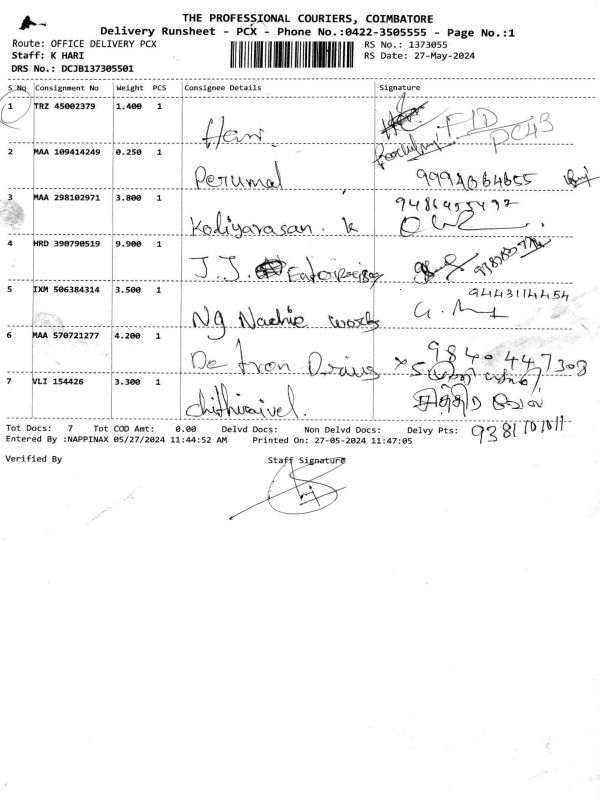 THE PROFESSIONAL COURIERS, COIMBATORE
Delivery Runsheet - PCX - Phone No.:0422-3505555 - Page No.:1
Route: OFFICE DELIVERY PCX
RS No.: 1373055
Staff: K HARI
RS Date: 27-May-2024
DRS No.: DCJB137305501
S_No Consignment No Weight PCS Consignee Details Signature
1 TRZ 45002379 1.400 1
Hari
F-ID
PC43
2 MAA 109414249 0.250 1
Perumal
3 MAA 298102971 3.800 1
Kodiyarasan. k
4 HRD 390790519 9.900 1
J. J.
5 IXM 506384314 3.500 1
9443114454
Ng works
6 MAA 570721277 4.200 1
De tron
9840447308
7 VLI 154426 3.300 1
chithiraivel.
Tot Docs: 7 Tot COD Amt: 0.00 Delvd Docs: Non Delvd Docs: Delvy Pts:
9381101011
Entered By :NAPPINAX 05/27/2024 11:44:52 AM Printed On: 27-05-2024 11:47:05
Verified By Staff Signature